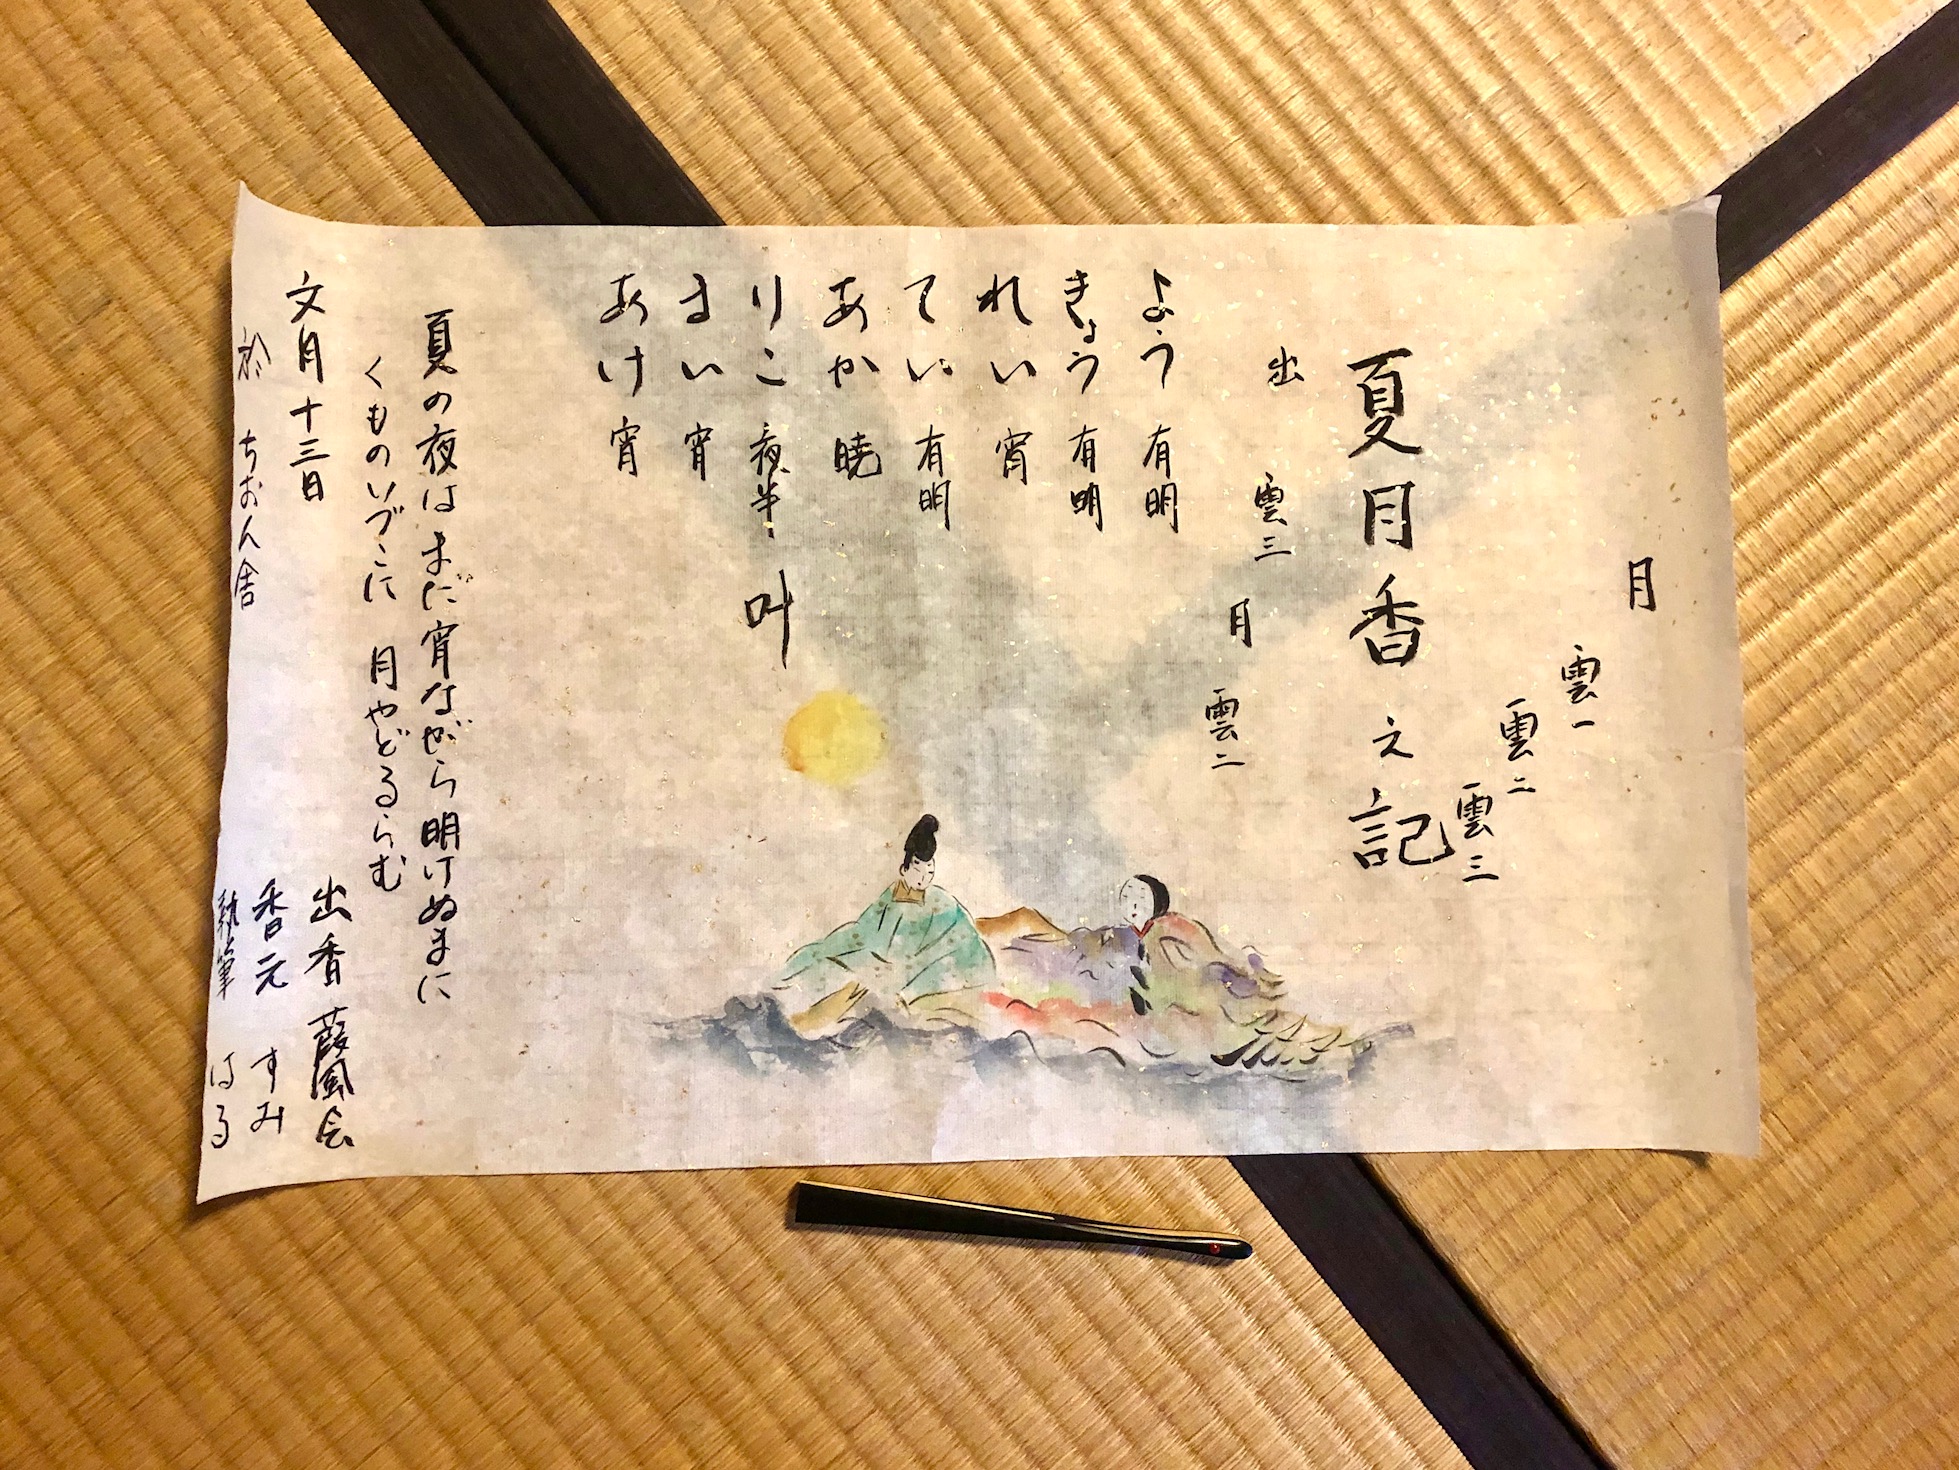 月
雲一
雲二
雲三
夏月香之記
出 雲三 月 雲二
よう 有明
きょう 有明
れい 宵
てい 有明
あか 暁
りこ 夜半 叶
まい 宵
あけ 宵
夏の夜はまだ宵ながら明けぬまに
くものいづこに 月やどるらむ
文月十三日
於 ちおん舎
出香 葭風会
香元 すみ
執筆 はる